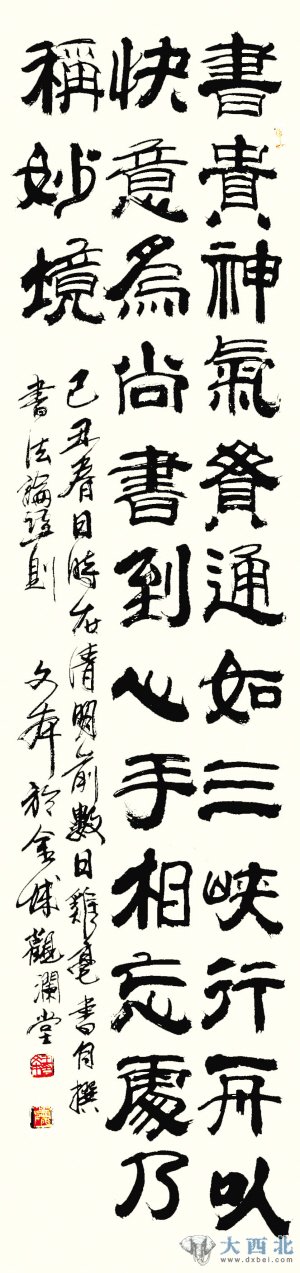 書貴神氣貫通如三峽行舟以
快意為尚書到心手相忘處乃
稱妙境
己丑春日時在清明前數日雞毫書自撰
書法論語一則 文奔於金城觀瀾堂
大西北
www.dxbei.com